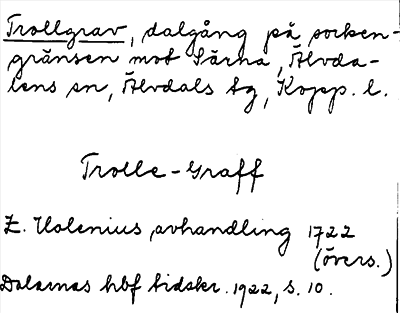 Trollgrav, dalgång på socken-
gränsen mot Särna, Älvda-
lens sn, Älvdals tg, Kopp. l.
Trolle-Graff
E. Holenius avhandling 1722
(övers.)
Dalarnas hbf tidskr. 1922, s. 10.